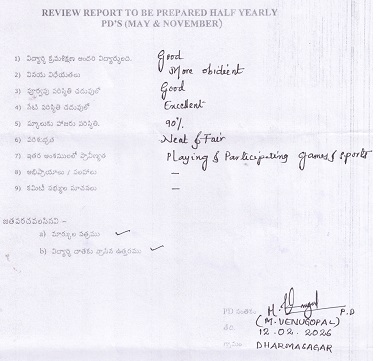 REVIEW REPORT TO BE PREPARED HALF YEARLY
PD'S (MAY & NOVEMBER)
1) విద్యార్థి క్రమశిక్షణ Good
2) విధేయతలు More obidient
3) పూర్వపు పరిస్థితి చదువులో Good
4) నేటి పరిస్థితి చదువులో Excellent
5) హాజరు పరిస్థితి. 90%
6) పరిశుభ్రత Neat & Fair
7) ఇతర అంశములలో ప్రావీణ్యత Playing & Participating games & sports
8) అభిప్రాయాలు / సలహాలు –
9) కమిటీ సభ్యుల సూచనలు –
జతపరచవలసినవి –
a) మార్కుల పత్రము ✓
b) విద్యార్థి దాతకు వ్రాసిన ఉత్తరము ✓
PD సంతకం P.D
(M. VENUGOPAL)
తేది. 12.02.2026
గ్రామం DHARMASAGAR